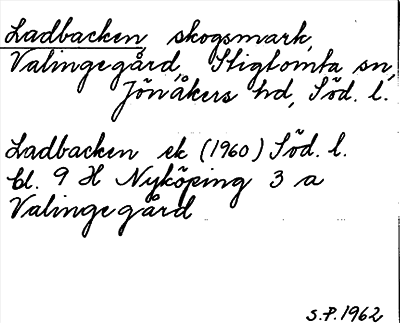 Ladbacken, skogsmark,
Valingegård, Stigtomta sn,
Jönåkers hd, Söd. l.
Ladbacken ek (1960) Söd. l.
bl. 9 H Nyköping 3 a
Valingegård
S.P. 1962